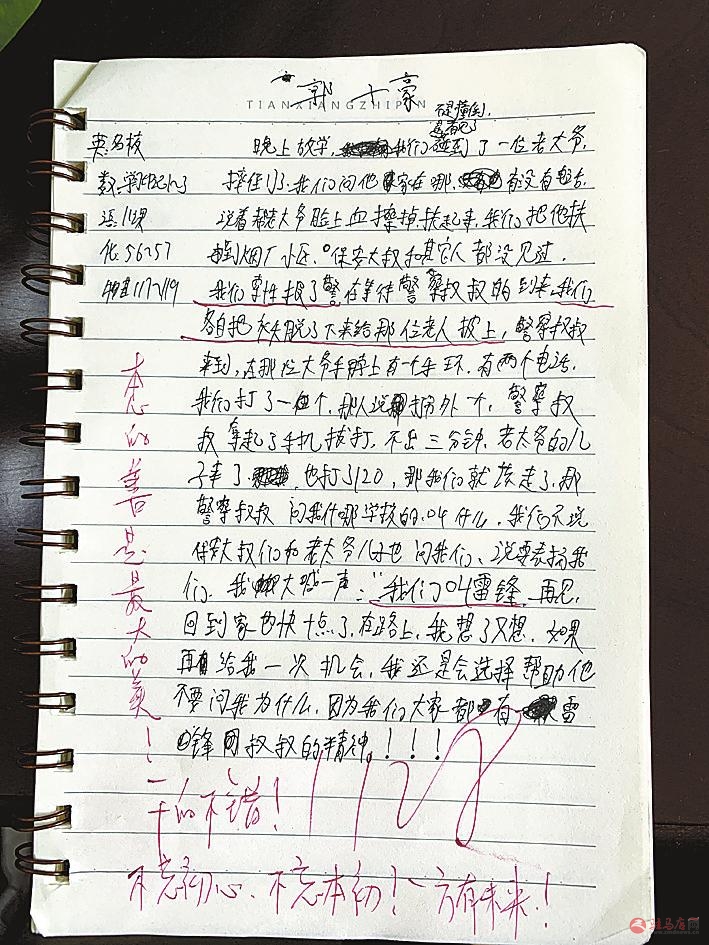 郭士豪
TIANXIANGZHIPIN
不是撞到，
是看见了
晚上放学，我们碰到了一位老大爷.
摔住了.我们问他家在哪.有没有电话.
说着帮老大爷脸上血擦掉.扶起来.我们把他扶
到烟厂小区.保安大叔和其它人都没见过.
我们果断报了警在等待警察叔叔的到来,我们
各自把衣服脱了下来给那位老人披上,警察叔叔
来到,在那位大爷手脖上有一个手环.有两个电话.
我们打了一个.那人说打另外一个,警察叔
叔拿起了手机拨打.不出三分钟.老大爷的儿
子来了.也打了120,那我们就该走了.那
警察叔叔问我们哪学校的.叫什么.我们不说
保安大叔们和老大爷儿子也问我们、说要表扬我
们.我大喊一声:"我们叫雷锋.再见,
回到家也快十点了.在路上,我想了又想.如果
再给我一次机会,我还是会选择帮助他
不要问我为什么,因为我们大家都有雷
锋叔叔的精神。！！！
英
数学
语
化.56~57
物理117~119
本心的善是最大的美！
干的不错！
1128
不忘初心、不忘本初！方有未来！
驻马店网